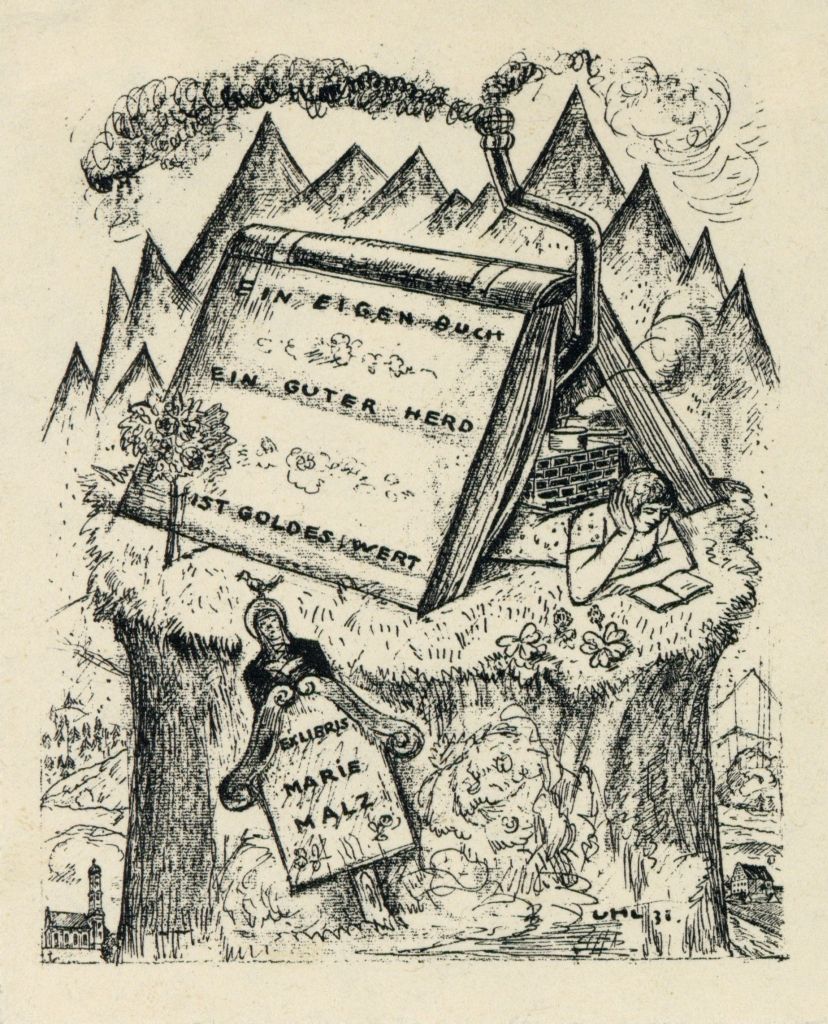 EIN EIGEN BUCH
EIN GUTER HERD
IST GOLDES WERT
EXLIBRIS
MARIE
MALZ
UHL 31.